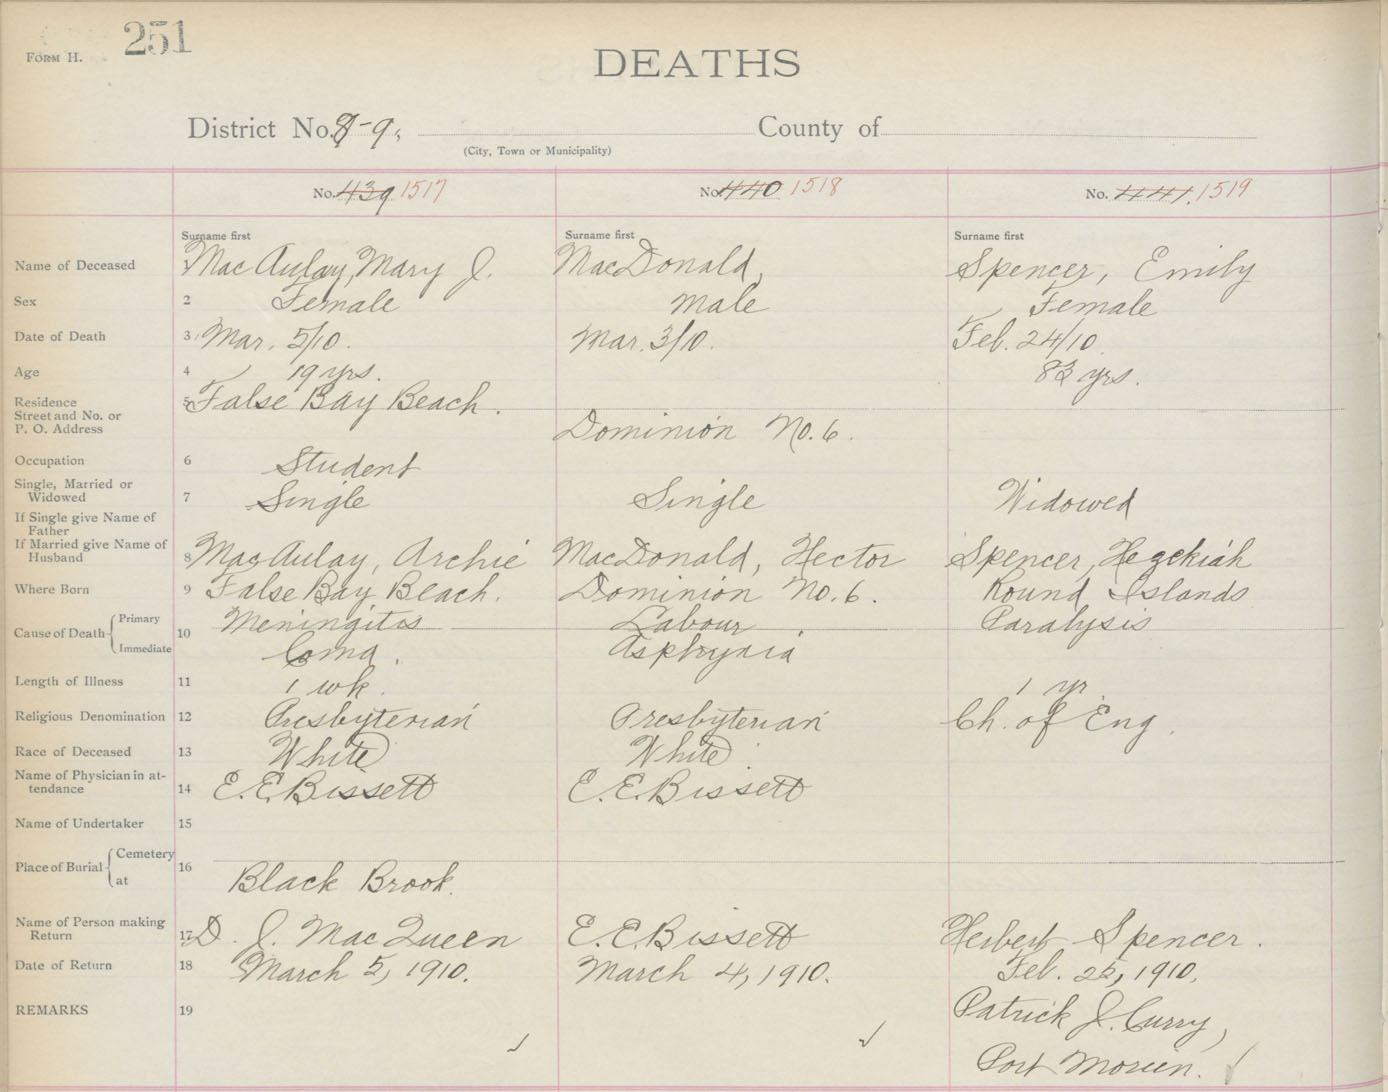 FORM H. 251
DEATHS
District No. 8-9, County of
(City, Town or Municipality)
No. 439 1517 No. 440 1518 No. 441. 1519
Surname first Surname first Surname first
Name of Deceased 1 MacAulay, Mary J. MacDonald, Spencer, Emily
Sex 2 Female Male Female
Date of Death 3 Mar. 5/10. Mar. 3/10. Feb. 24/10
Age 4 19 yrs. 83 yrs.
Residence 5 False Bay Beach.
Street and No. or
P. O. Address Dominion No. 6.
Occupation 6 Student
Single, Married or
Widowed 7 Single Single Widowed
If Single give Name of
Father
If Married give Name of
Husband 8 MacAulay, Archie MacDonald, Hector Spencer, Hezekiah
Where Born 9 False Bay Beach. Dominion No. 6. Round Islands
Cause of Death Primary 10 Meningitis Labour Paralysis
Immediate Coma. Asphyxia
Length of Illness 11 1 wk. 1 yr.
Religious Denomination 12 Presbyterian Presbyterian Ch. of Eng.
Race of Deceased 13 White White
Name of Physician in at-
tendance 14 E. E. Bissett E. E. Bissett
Name of Undertaker 15
Place of Burial Cemetery 16
at Black Brook.
Name of Person making
Return 17 D. J. MacQueen E. E. Bissett Herbert Spencer.
Date of Return 18 March 5, 1910. March 4, 1910. Feb. 25, 1910.
REMARKS 19 Patrick J. Curry,
Port Morien.